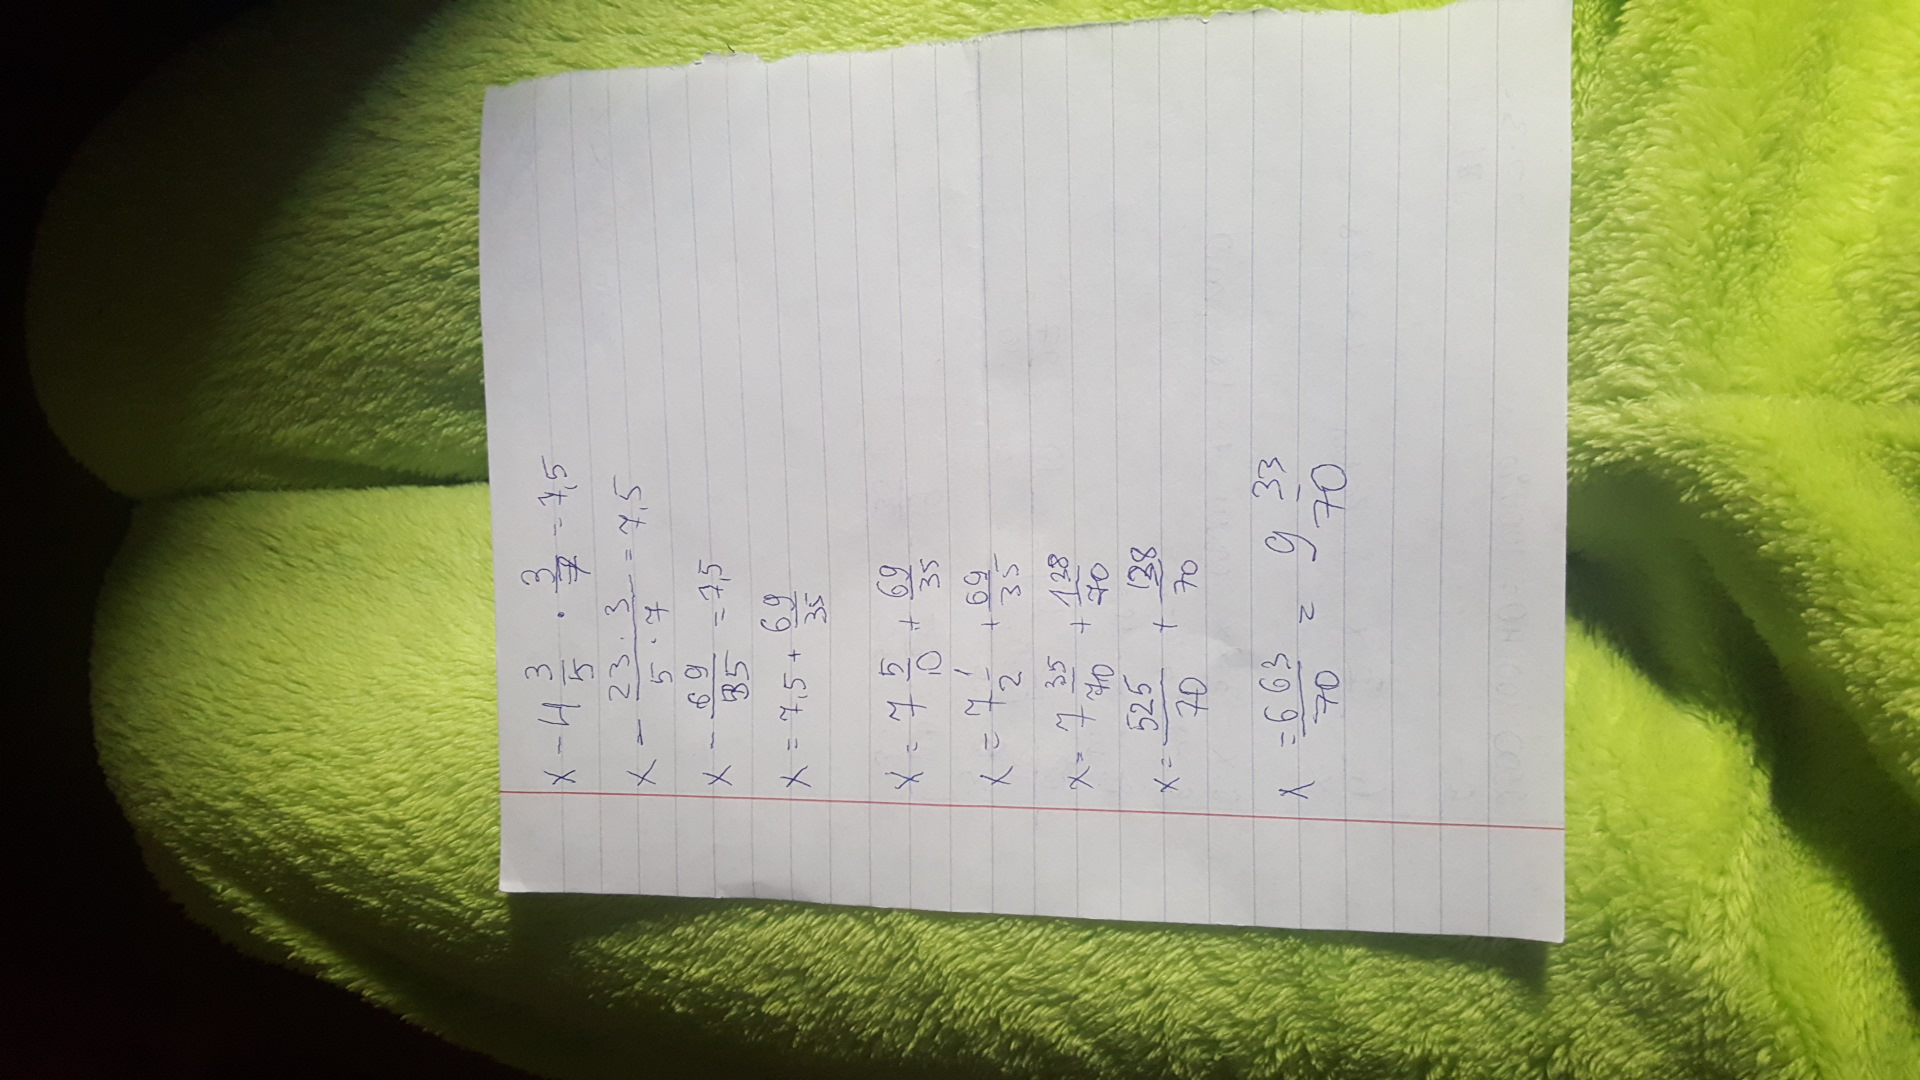 x - 4 3/5 · 3/7 = 7,5
x - 23·3/5·7 = 7,5
x - 69/35 = 7,5
x = 7,5 + 69/35
x = 7 5/10 + 69/35
x = 7 1/2 + 69/35
x = 7 35/70 + 138/70
x = 525/70 + 138/70
x = 663/70 = 9 33/70